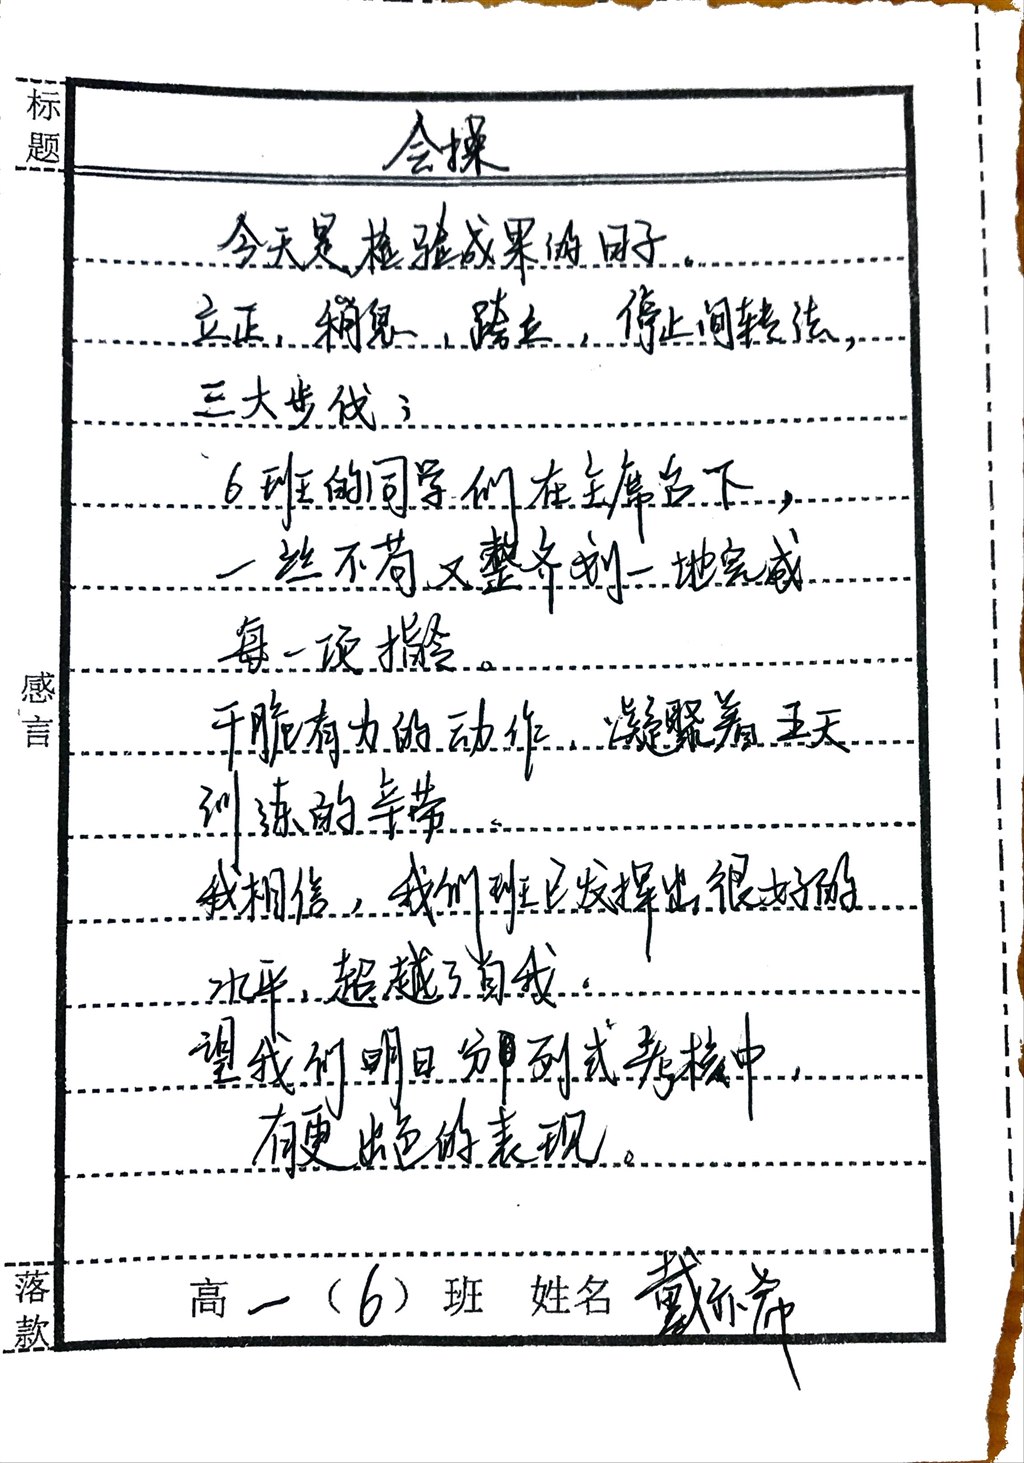 标题
会操
今天是检验成果的日子。
立正，稍息，跨立，停止间转法，
三大步伐；
6班的同学们在主席台下，
一丝不苟又整齐划一地完成
每一项指令。
干脆有力的动作，凝聚着五天
训练的辛劳。
我相信，我们班已发挥出很好的
水平，超越了自我。
望我们明日分列式考核中，
有更出色的表现。
感言
落款
高一（6）班 姓名 戴亦希